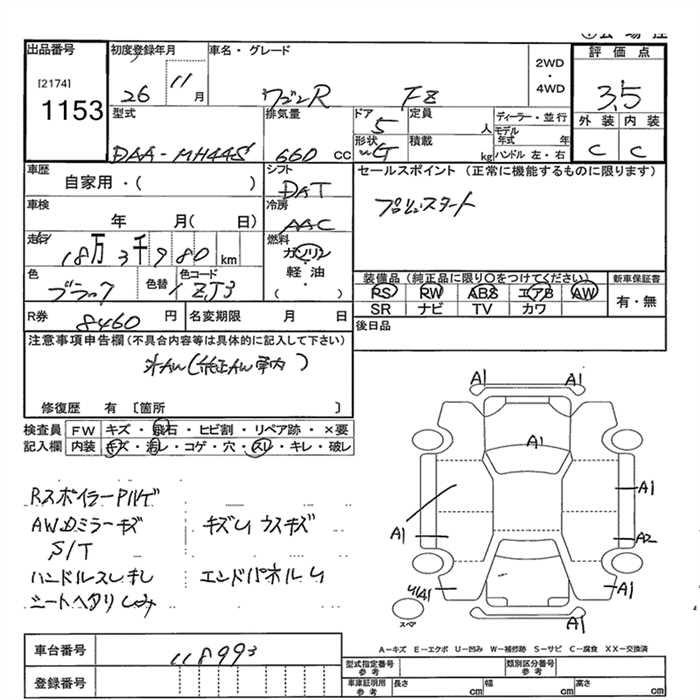 出品番号
[2174]
1153
初度登録年月
26
11月
車名・グレード
ワゴンR FZ
2WD
・
4WD
評価点
3.5
外装 内装
C C
型式
DAA-MH44S
排気量
660 cc
ドア
5
形状
定員
人
積載
kg
ディーラー・並行
モデル年式 年
ハンドル 左・右
車歴
自家用・( )
シフト
DAT
セールスポイント(正常に機能するものに限ります)
プッシュスタート
車検
年 月( 日)
冷房
AAC
走行
18万3千980 km
燃料
ガソリン
軽油
・
( )
色
ブラック
色替
色コード
ZJ3
装備品(純正品に限り○をつけてください)
PS RW ABS エアB AW
SR ナビ TV カワ
新車保証書
有・無
R券
8460 円
名変期限 月 日
後日品
注意事項申告欄(不具合内容等は具体的に記入して下さい)
社外AW(純正AW車内)
修復歴 有 [箇所 ]
検査員
記入欄
FW キズ・飛石・ヒビ割・リペア跡・×要
内装 キズ・汚レ・コゲ・穴・スレ・キレ・破レ
Rスポイラー
AW Dミラーキズ
S/T
ハンドルスレキレ
シートヘタリ シミ
キズU ウスキズ
エンドパネルU
A1 A1
A1
A1
A1
A2
A1
U1 A1
A1
スペア
A-キズ E-エクボ U-凹み W-補修跡 S-サビ C-腐食 XX-交換済
車台番号
118993
登録番号
型式指定番号
参考
類別区分番号
参考
車庫証明用
参考
長さ cm
幅 cm
高さ cm